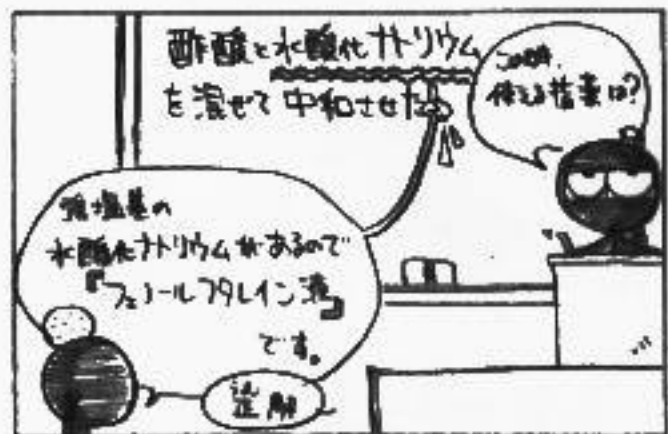 酢酸と水酸化ナトリウム
を混ぜて中和させたら
この時、
使える指薬は?
強塩基の
水酸化ナトリウムがあるので
『フェノールフタレイン液』
です。
正解